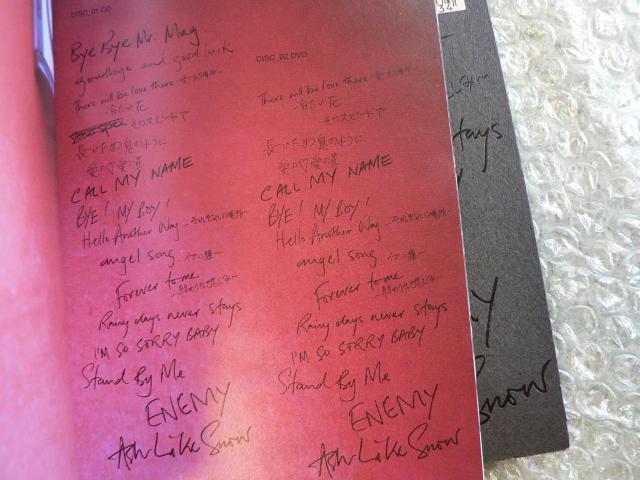 DISC_01 CD
Bye Bye Mr. Mug
goodbye and good luck
There will be love there -愛のある場所-
冷たい花
そのスピードで
長いため息のように
愛の♡愛の星
CALL MY NAME
BYE! MY BOY!
Hello Another Way -それぞれの場所-
angel song -イヴの鐘-
Forever to me
~終わりなき悲しみ~
Rainy days never stays
I'M SO SORRY BABY
Stand By Me
ENEMY
Ash Like Snow
DISC_02 DVD
There will be love there -愛のある場所-
冷たい花
そのスピードで
長いため息のように
愛の♡愛の星
CALL MY NAME
BYE! MY BOY!
Hello Another Way -それぞれの場所-
angel song -イヴの鐘-
Forever to me
~終わりなき悲しみ~
Rainy days never stays
I'M SO SORRY BABY
Stand By Me
ENEMY
Ash Like Snow
stays
Y
Snow